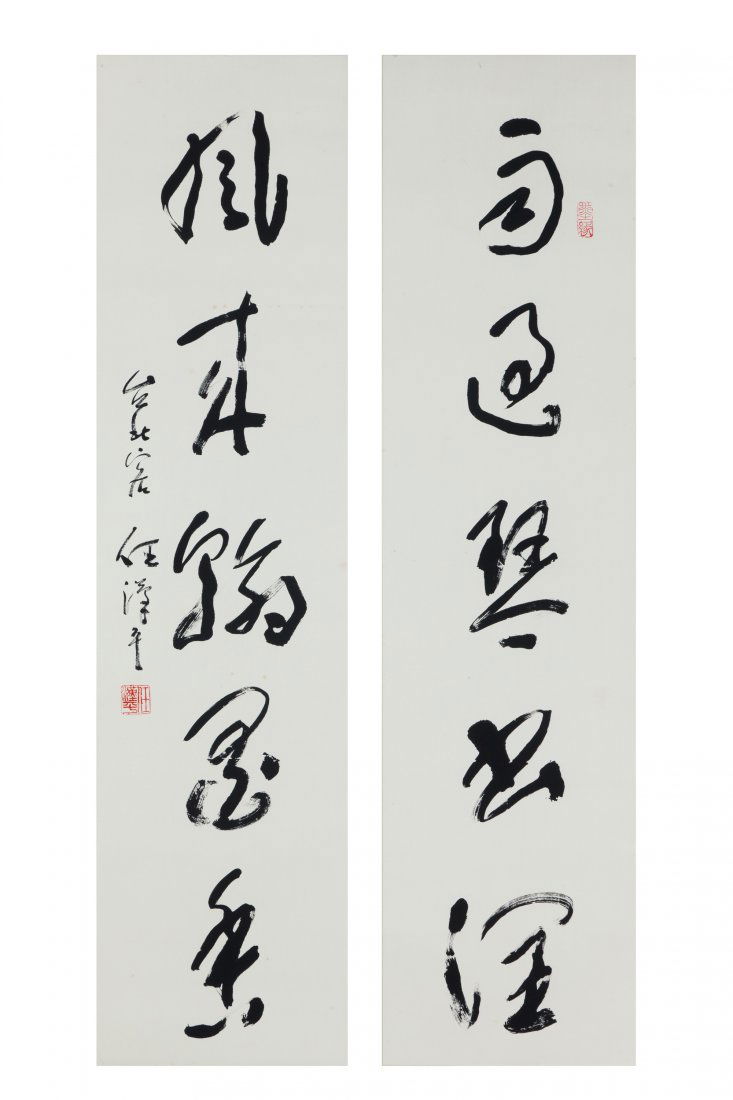 雨過琴書潤
風來翰墨香
台北客居 任漢平